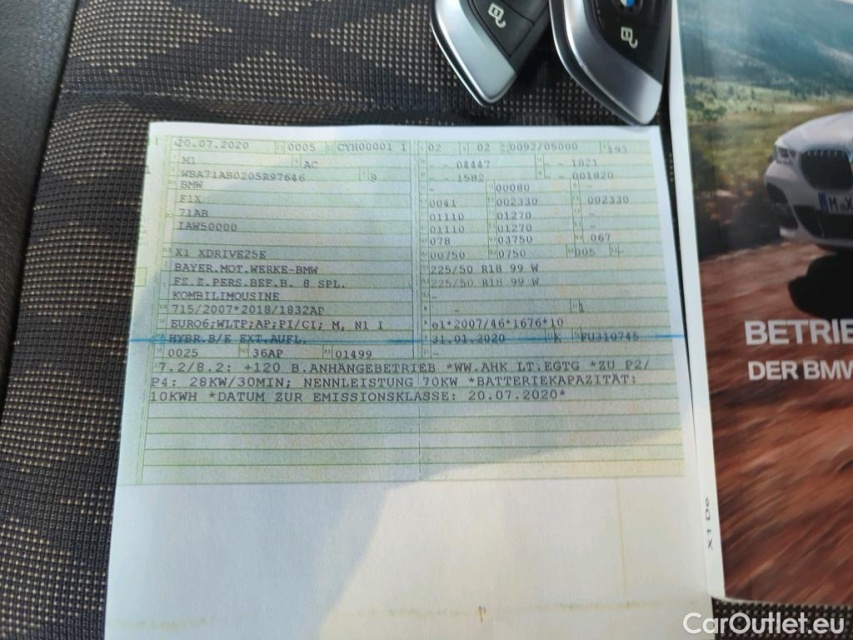 20.07.2020 0005 CYH00001 1 02 02 0092/05000 193
M1 AC - - 04447 - - 1821
WBA71AB0205R97646 9 - - 1582 - - 001820
BMW - 00080 -
F1X 0041 002330 002330
71AB 01110 01270 -
IAW50000 01110 01270 -
078 03750 067
X1 XDRIVE25E 00750 0750 005 -
BAYER.MOT.WERKE-BMW 225/50 R18 99 W
FZ.Z.PERS.BEF.B. 8 SPL. 225/50 R18 99 W
KOMBILIMOUSINE -
715/2007*2018/1832AP - 1
EURO6;WLTP;AP;PI/CI; M, N1 I e1*2007/46*1676*10
HYBR.B/E EXT.AUFL. 31.01.2020 K FU310745
0025 36AP 01499
7.2/8.2: +120 B.ANHÄNGEBETRIEB *WW.AHK LT.EGTG *ZU P2/
P4: 28KW/30MIN; NENNLEISTUNG 70KW *BATTERIEKAPAZITÄT:
10KWH *DATUM ZUR EMISSIONSKLASSE: 20.07.2020*
BETRIE
DER BMW
X1 De
CarOutlet.eu